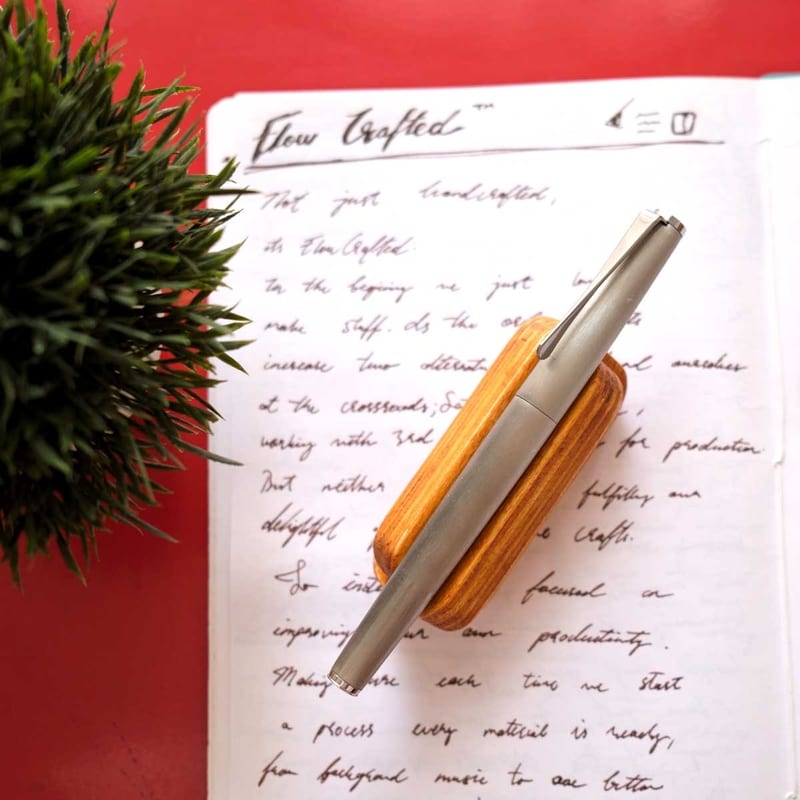 Flow Crafted™
Not just handcrafted,
its Flow Crafted.
In the begining we just
make stuff. As the
increase two nd ourselves
at the crossroads;
working with 3rd for production.
But neither fulfilling our
delightful crafts.
So focused on
improving our own productivity.
Making sure each time we start
a process every material is ready,
from background music to our button